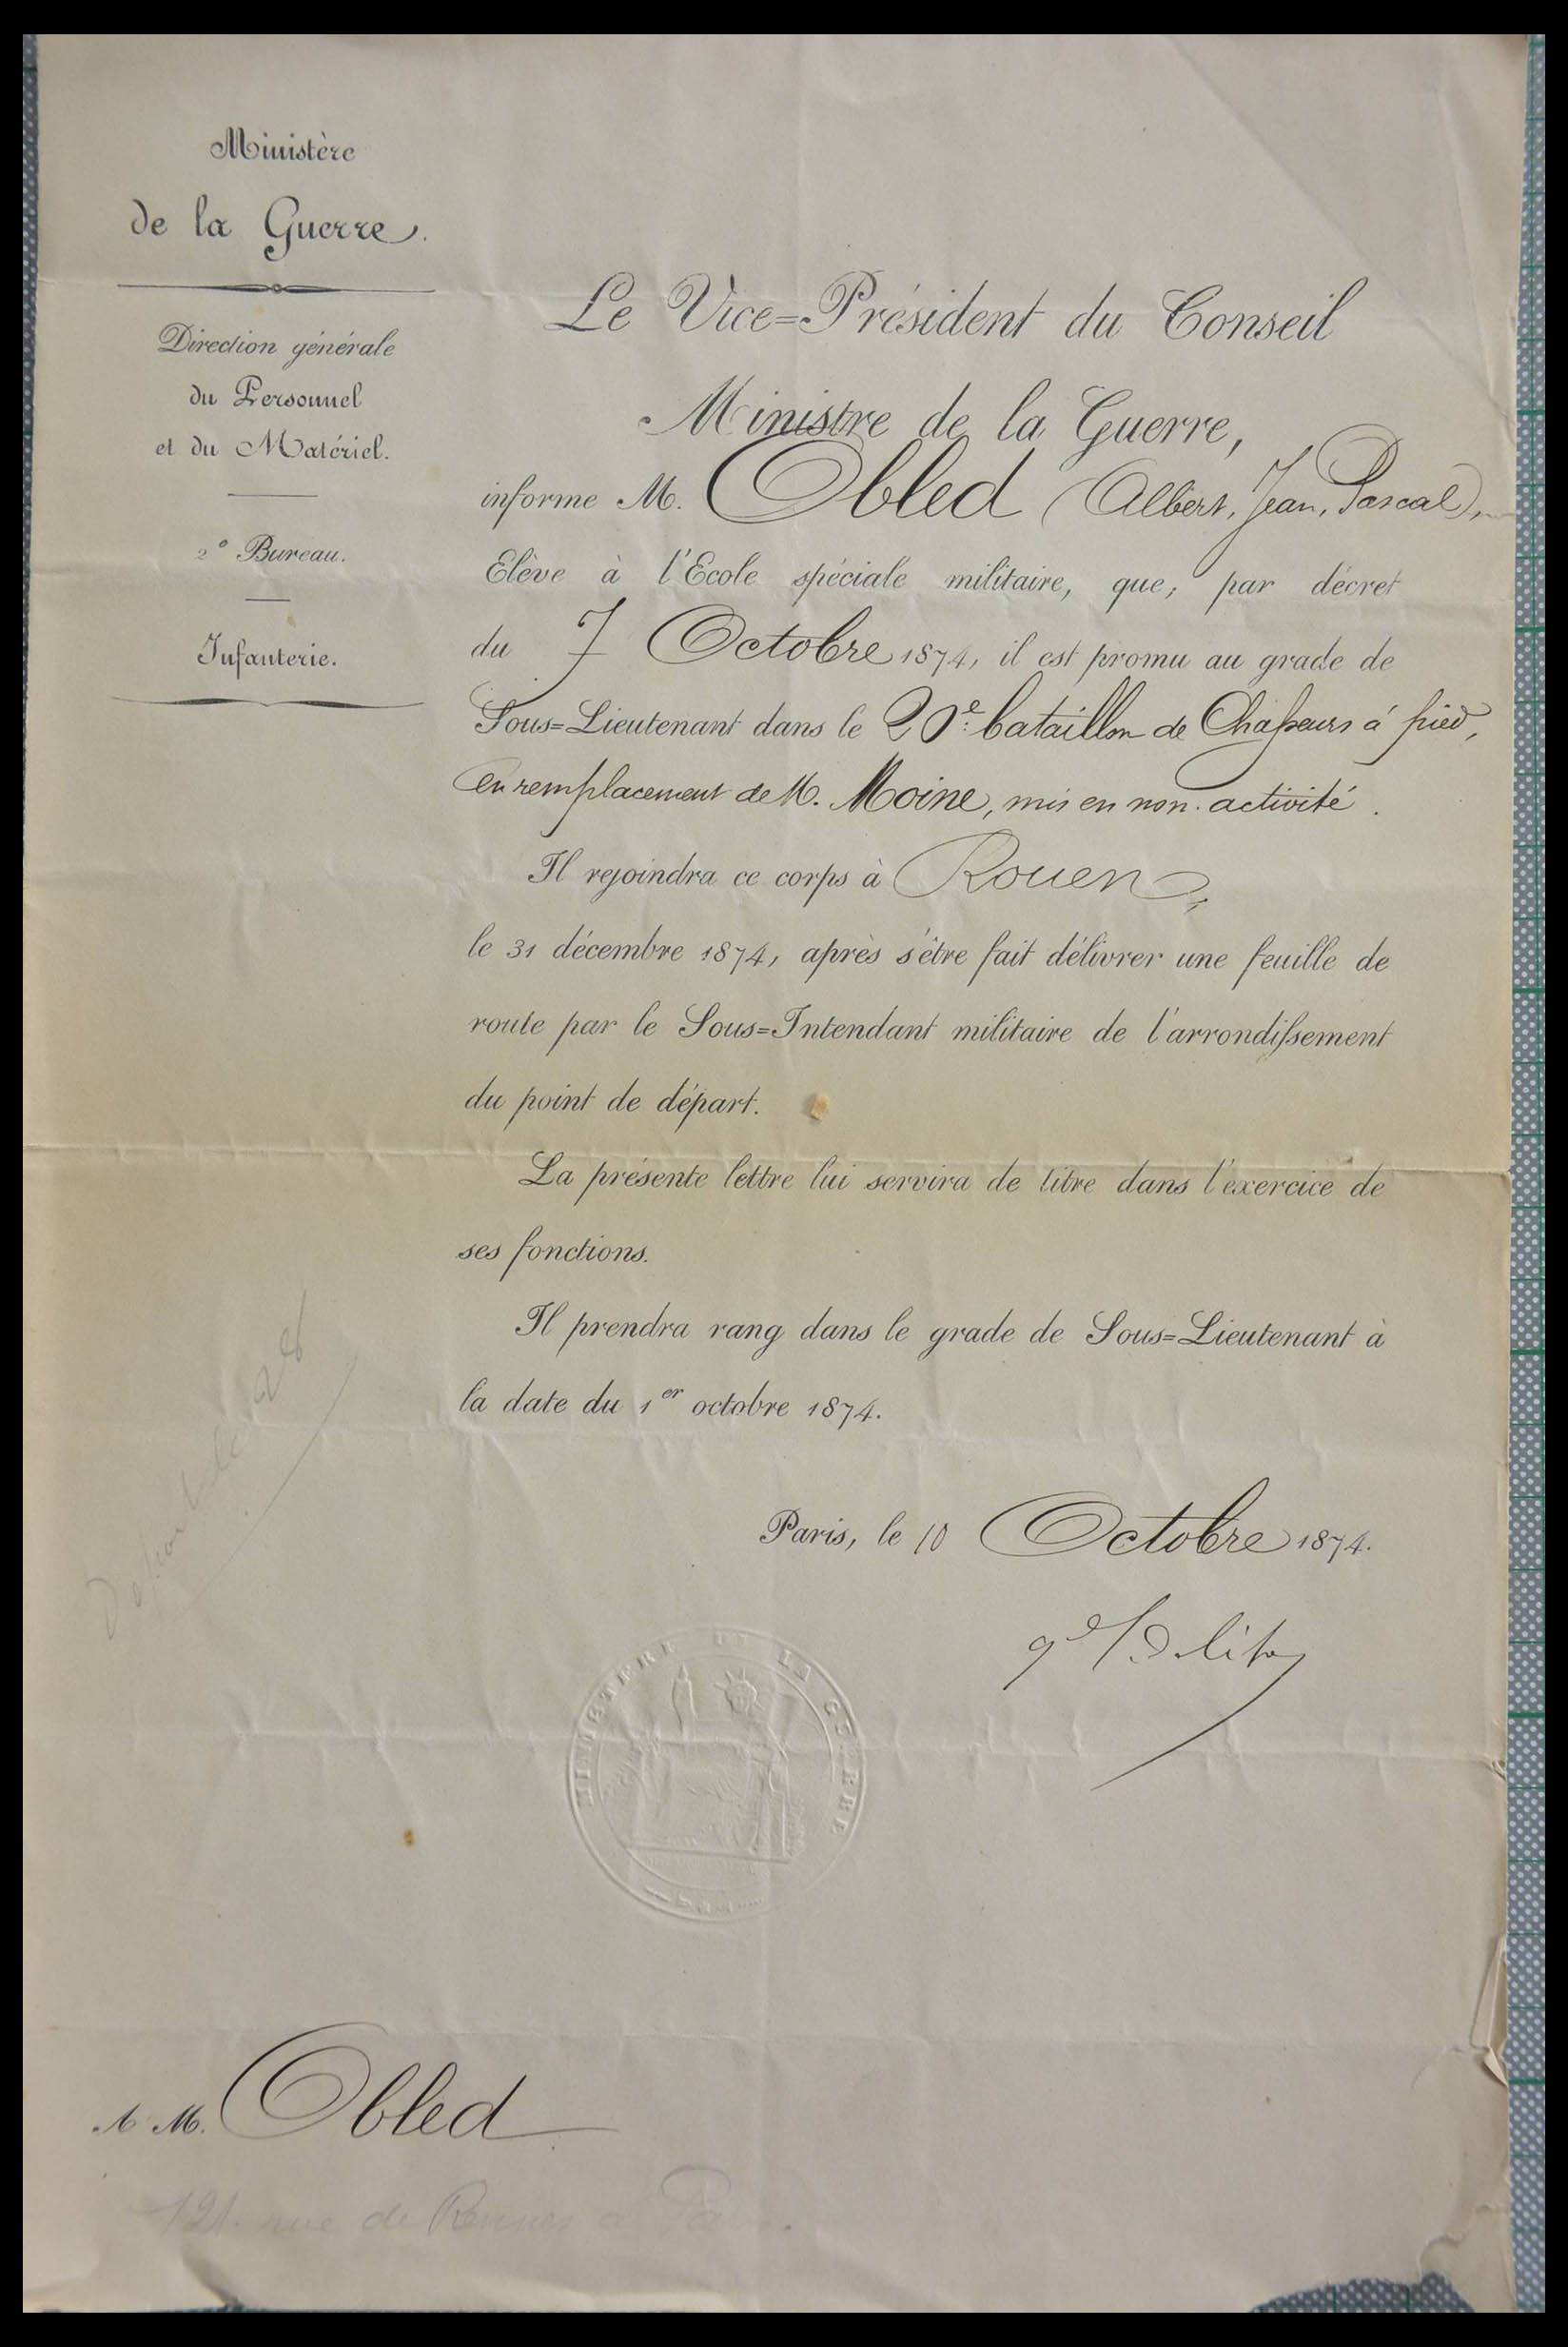 Ministère
de la Guerre.
Direction générale
du Personnel
et du Matériel.
2e Bureau.
Infanterie.
Le Vice=Président du Conseil
Ministre de la Guerre,
informe M. Obled (Albert, Jean, Pascal),
Elève à l'Ecole spéciale militaire, que, par décret
du 7 Octobre 1874, il est promu au grade de
Sous=Lieutenant dans le 20e bataillon de Chasseurs à pied,
en remplacement de M. Moine, mis en non-activité.
Il rejoindra ce corps à Rouen,
le 31 décembre 1874, après s'être fait délivrer une feuille de
route par le Sous=Intendant militaire de l'arrondissement
du point de départ.
La présente lettre lui servira de titre dans l'exercice de
ses fonctions.
Il prendra rang dans le grade de Sous=Lieutenant à
la date du 1er octobre 1874.
28
Paris, le 10 Octobre 1874.
MINISTERE DE LA GUERRE
A M. Obled
121 rue de Rennes a